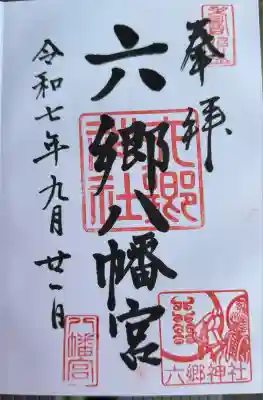 奉拝
六郷八幡宮
六郷神社
令和七年九月廿一日
八幡宮
六郷神社